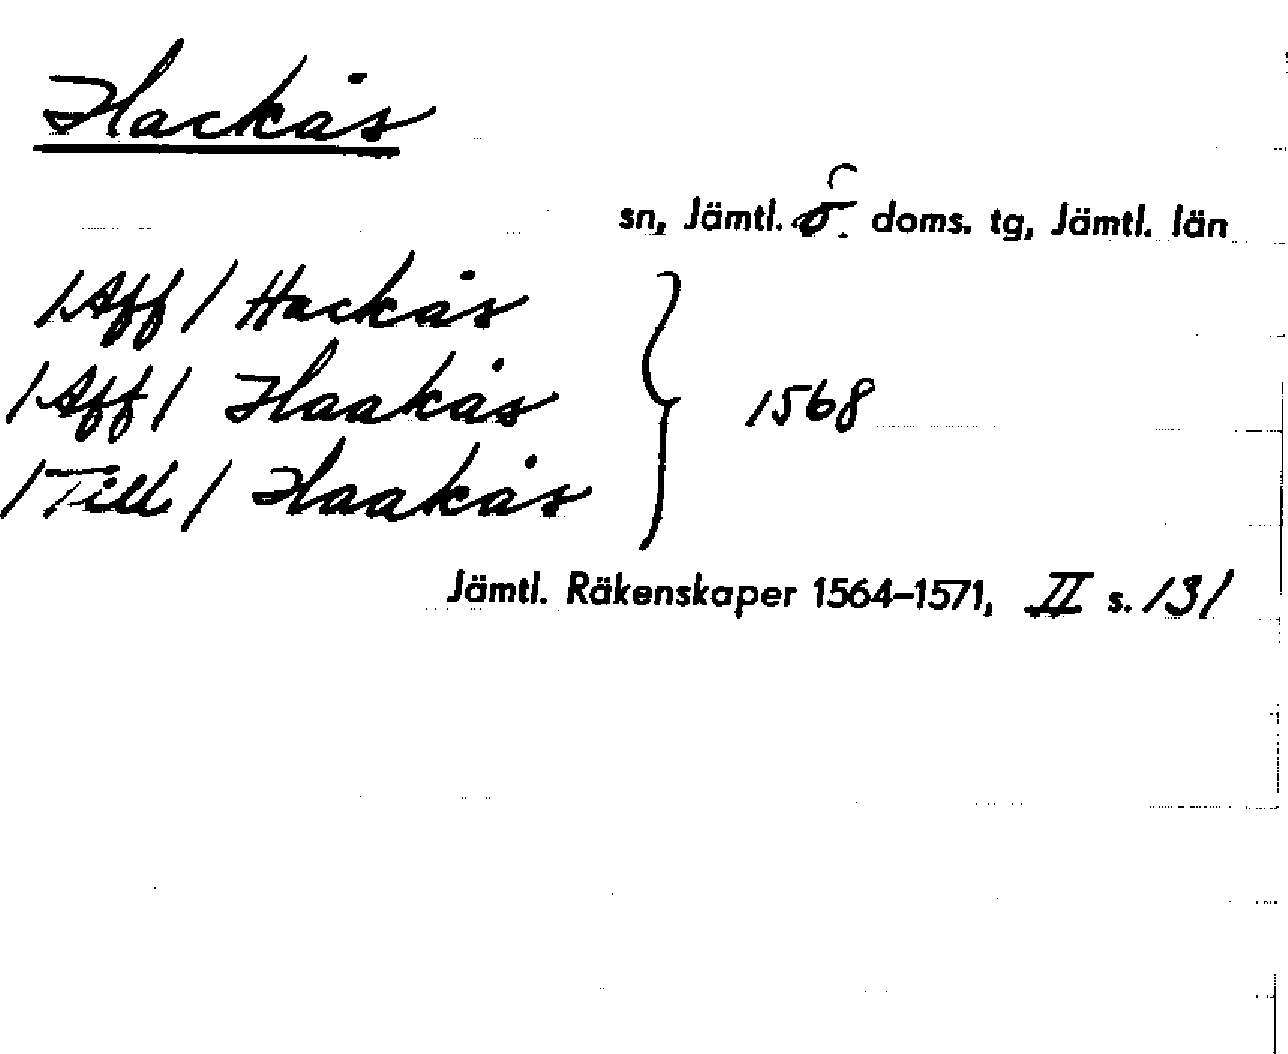 Hackås
sn, Jämtl. ö. doms. tg, Jämtl. län
/Aff/ Hackås
/Aff/ Haakås
1568
/Till/ Haakås
Jämtl. Räkenskaper 1564–1571, II s. 131